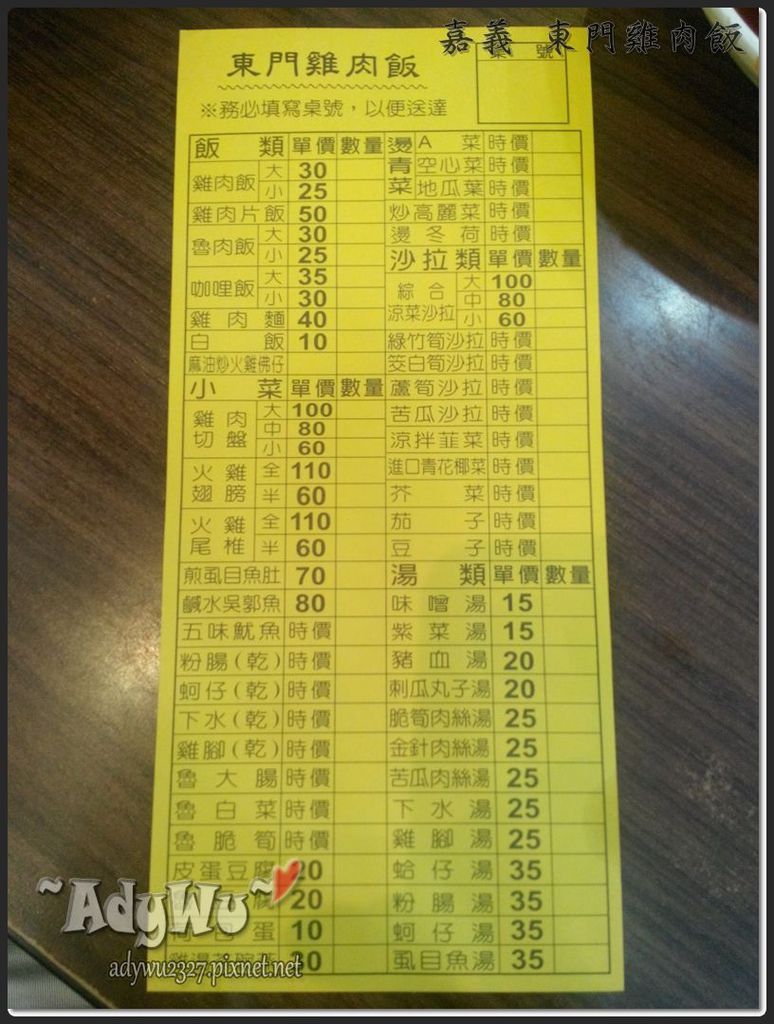 嘉義 東門雞肉飯
東門雞肉飯
桌號
※務必填寫桌號，以便送達
飯類 單價 數量
雞肉飯 大 30
小 25
雞肉片飯 50
魯肉飯 大 30
小 25
咖哩飯 大 35
小 30
雞肉麵 40
白飯 10
麻油炒火雞佛仔
小菜 單價 數量
雞肉切盤 大 100
中 80
小 60
火雞翅膀 全 110
半 60
火雞尾椎 全 110
半 60
煎虱目魚肚 70
鹹水吳郭魚 80
五味魷魚 時價
粉腸(乾) 時價
蚵仔(乾) 時價
下水(乾) 時價
雞腳(乾) 時價
魯大腸 時價
魯白菜 時價
魯脆筍 時價
皮蛋豆腐 20
腐 20
蛋 10
燙青菜 A菜 時價
空心菜 時價
地瓜葉 時價
炒高麗菜 時價
燙冬荷 時價
沙拉類 單價 數量
綜合涼菜沙拉 大 100
中 80
小 60
綠竹筍沙拉 時價
筊白筍沙拉 時價
蘆筍沙拉 時價
苦瓜沙拉 時價
涼拌韮菜 時價
進口青花椰菜 時價
芥菜 時價
茄子 時價
豆子 時價
湯類 單價 數量
味噌湯 15
紫菜湯 15
豬血湯 20
刺瓜丸子湯 20
脆筍肉絲湯 25
金針肉絲湯 25
苦瓜肉絲湯 25
下水湯 25
雞腳湯 25
蛤仔湯 35
粉腸湯 35
蚵仔湯 35
虱目魚湯 35
~AdyWu~
adywu2327.pixnet.net